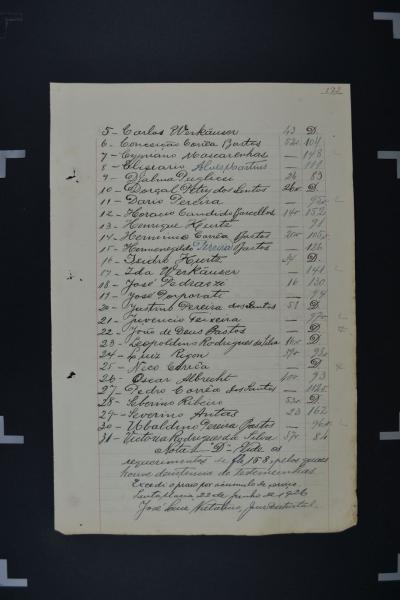 122
5 - Carlos Werkäuser 43 D.
6 - Conceição Corrêa Bastos 52v 104
7 - Cypriano Mascarenhas — 148
8 - Elisiario Alves Martins — 111
9 - Djalma Puglieu 26 83
10 - Dorçal Petry dos Santos 26v D.
11 - Dario Pereira — 95v
12 - Horacio Candido Vascellos 14v 152
13 - Henrique Kurtz — 71
14 - Herminio Corrêa Bastos 20v 105v
15 - Hermenegildo Pereira Bastos — 126
16 - Kurtz 24 D.
17 - Ida Werkäuser — 141
18 - José Pedrazze 16 130
19 - José Dorporati — 74
20 - Justino Pereira dos Santos 51 D.
21 - Juvencio Teixeira — 97v
22 - João de Deus Bastos — D.
23 - Leopoldino Rodrigues da Silva 16v D.
24 - Luiz Rigon 27v 93v
25 - Nico Corrêa — D.
26 - Oscar Albrecht 40v 93
27 - Pedro Corrêa dos Santos — 112v
28 - Seberino Ribeiro 53v D.
29 - Severino Antães 23 162
30 - Ubaldino Pereira Bastos — 96v
31 - Victoria Rodrigues da Silva 57v 84
Nota: "D" - Vide os
requerimentos de fls 158, pelos quaes
houve desistencia de testemunhas.
Excedi o prazo por accumulo de
Santa Maria, 22 de Junho de 1926
José Luiz